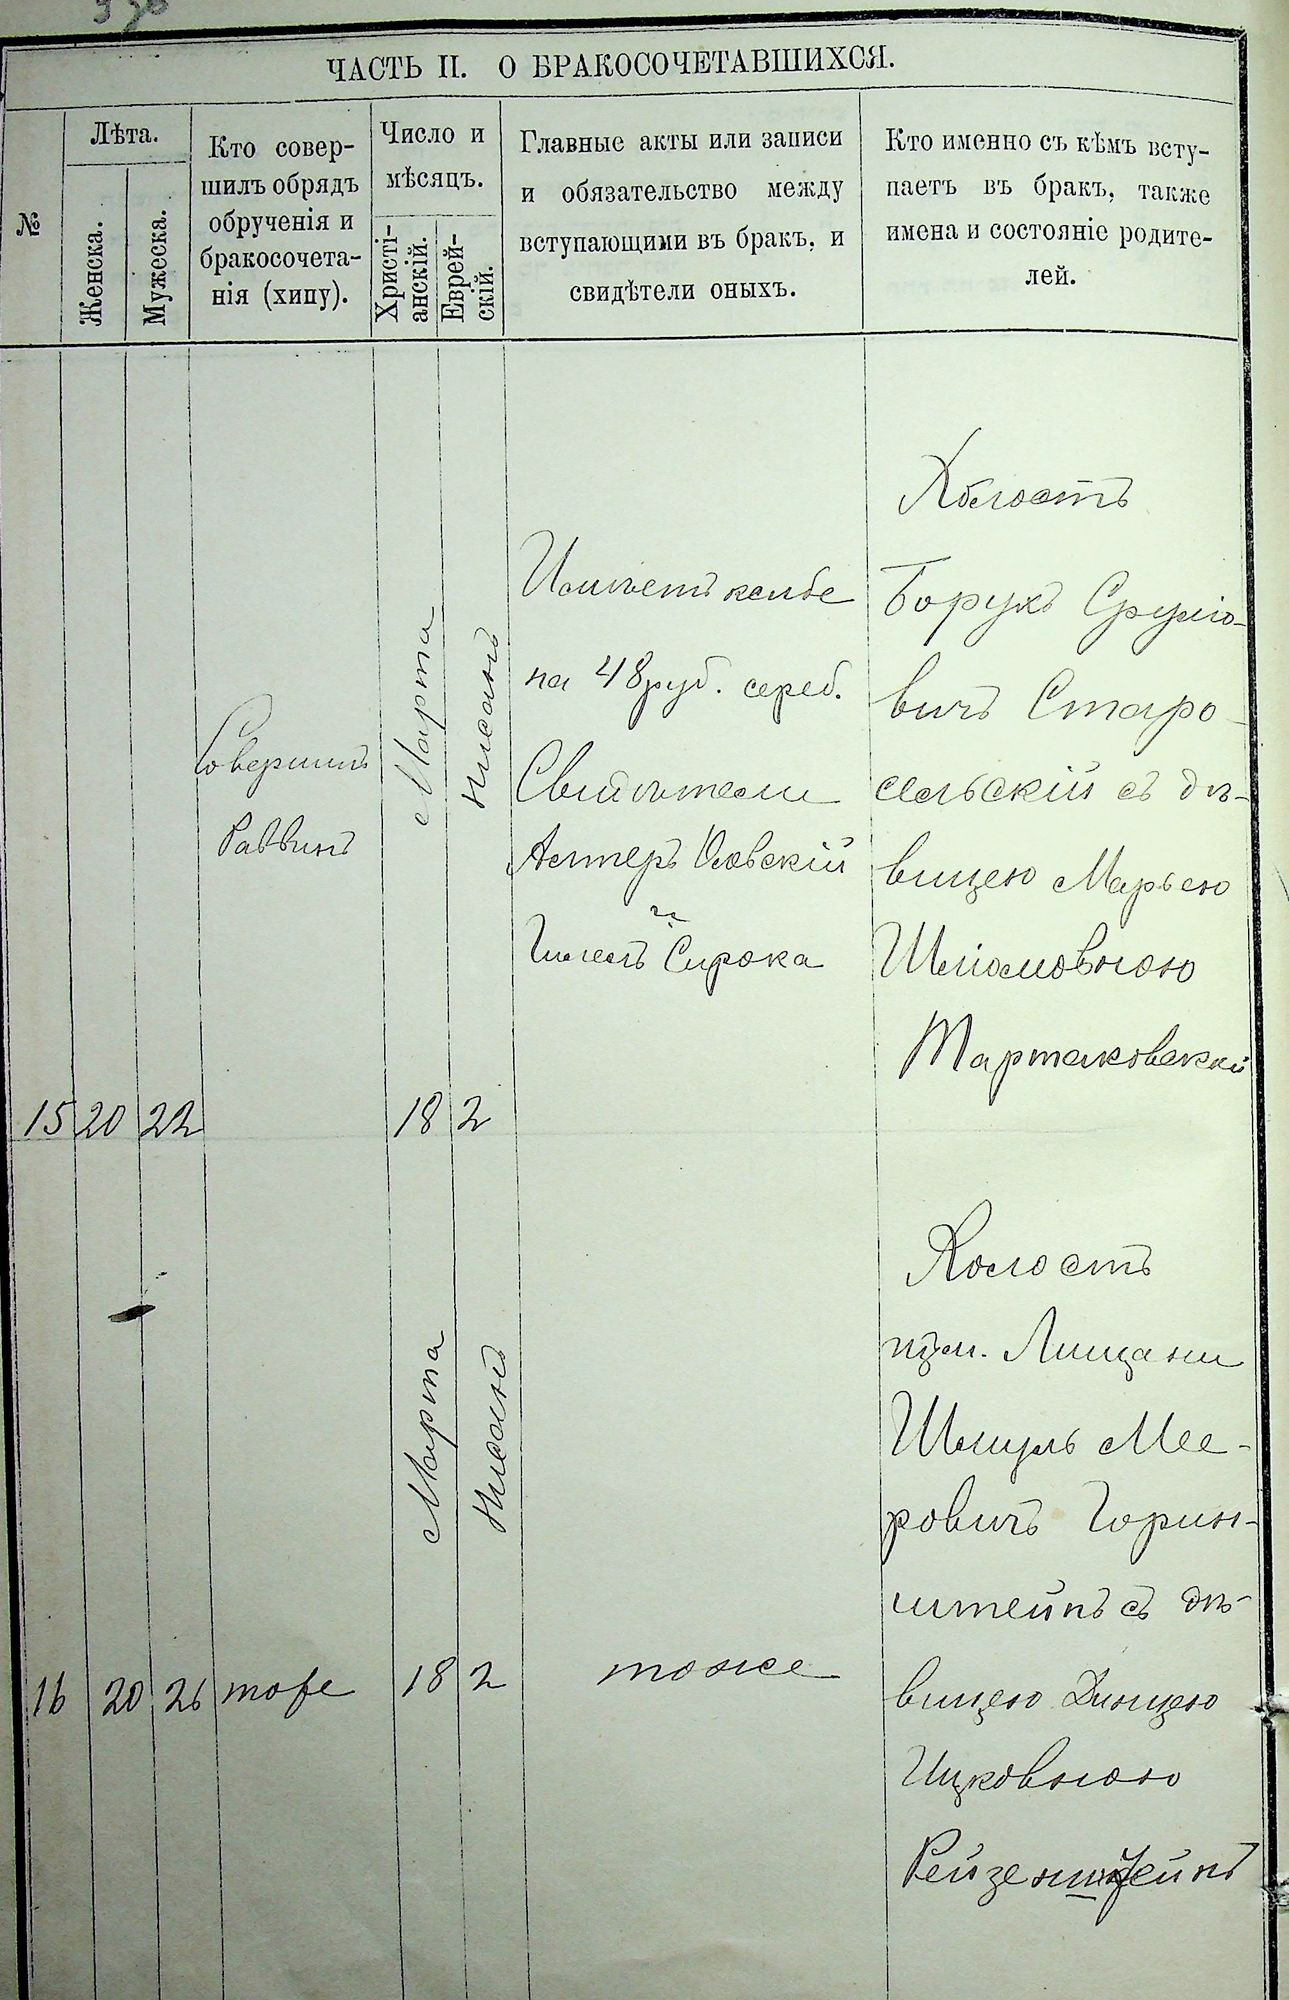 ЧАСТЬ II. О БРАКОСОЧЕТАВШИХСЯ.
№
Лѣта.
Женска.
Мужеска.
Кто совер-
шилъ обрядъ
обрученія и
бракосочета-
нія (хипу).
Число и
мѣсяцъ.
Христі-
анскій.
Еврей-
скій.
Главные акты или записи
и обязательство между
вступающими въ бракъ, и
свидѣтели оныхъ.
Кто именно съ кѣмъ всту-
паетъ въ бракъ, также
имена и состояніе родите-
лей.
15
20
22
Совершилъ
Раввинъ
Марта
18
Нисанъ
2
на 48 руб. сереб.
Свидѣтели
и
Сирока
Холостъ
Борухъ Срулiо-
вичъ Старо-
сельскій съ дѣ-
вицею Марьею
Шліомовною
Тартаковскій
16
20
26
тоже
Марта
18
Нисанъ
2
тоже
Холостъ
Шмуль Мее-
ровичъ Горин-
штейнъ съ дѣ-
вицею
Ицковною
Рейзенштейнъ